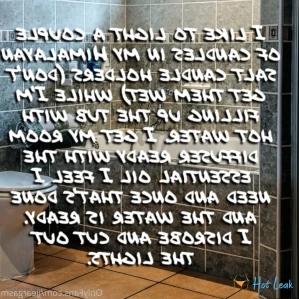 I LIKE TO LIGHT A COUPLE
OF CANDLES IN MY HIMALAYAN
SALT CANDLE HOLDERS (DON'T
GET THEM WET) WHILE I'M
FILLING UP THE TUB WITH
HOT WATER. I GET MY ROOM
DIFFUSER READY WITH THE
ESSENTIAL OIL I FEEL I
NEED AND ONCE THAT'S DONE
AND THE WATER IS READY,
I DISROBE AND CUT OUT
THE LIGHTS.
Hot Leak